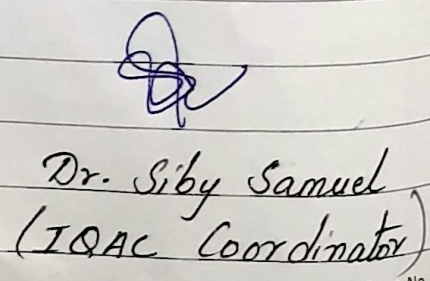 Dr. Siby Samuel
(IQAC Coordinator)